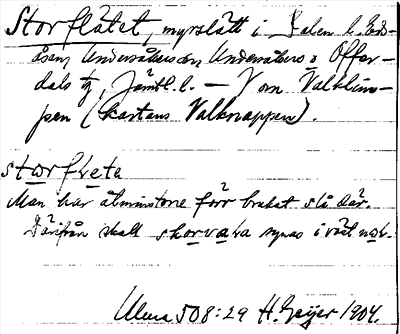 Storflätet, myrslätt i Dalen l. Edsåsen,
Undersåkers sn, Undersåkers o Offerdals
tg, Jämtl. l. — V om Valklumpen
(kartans Valknappen).
storfleta
Man har åtminstone förr brukat slå där.
Därifrån skall skorvara synas i väst. nok.
Ulma 508:29 H. Geijer 1904.